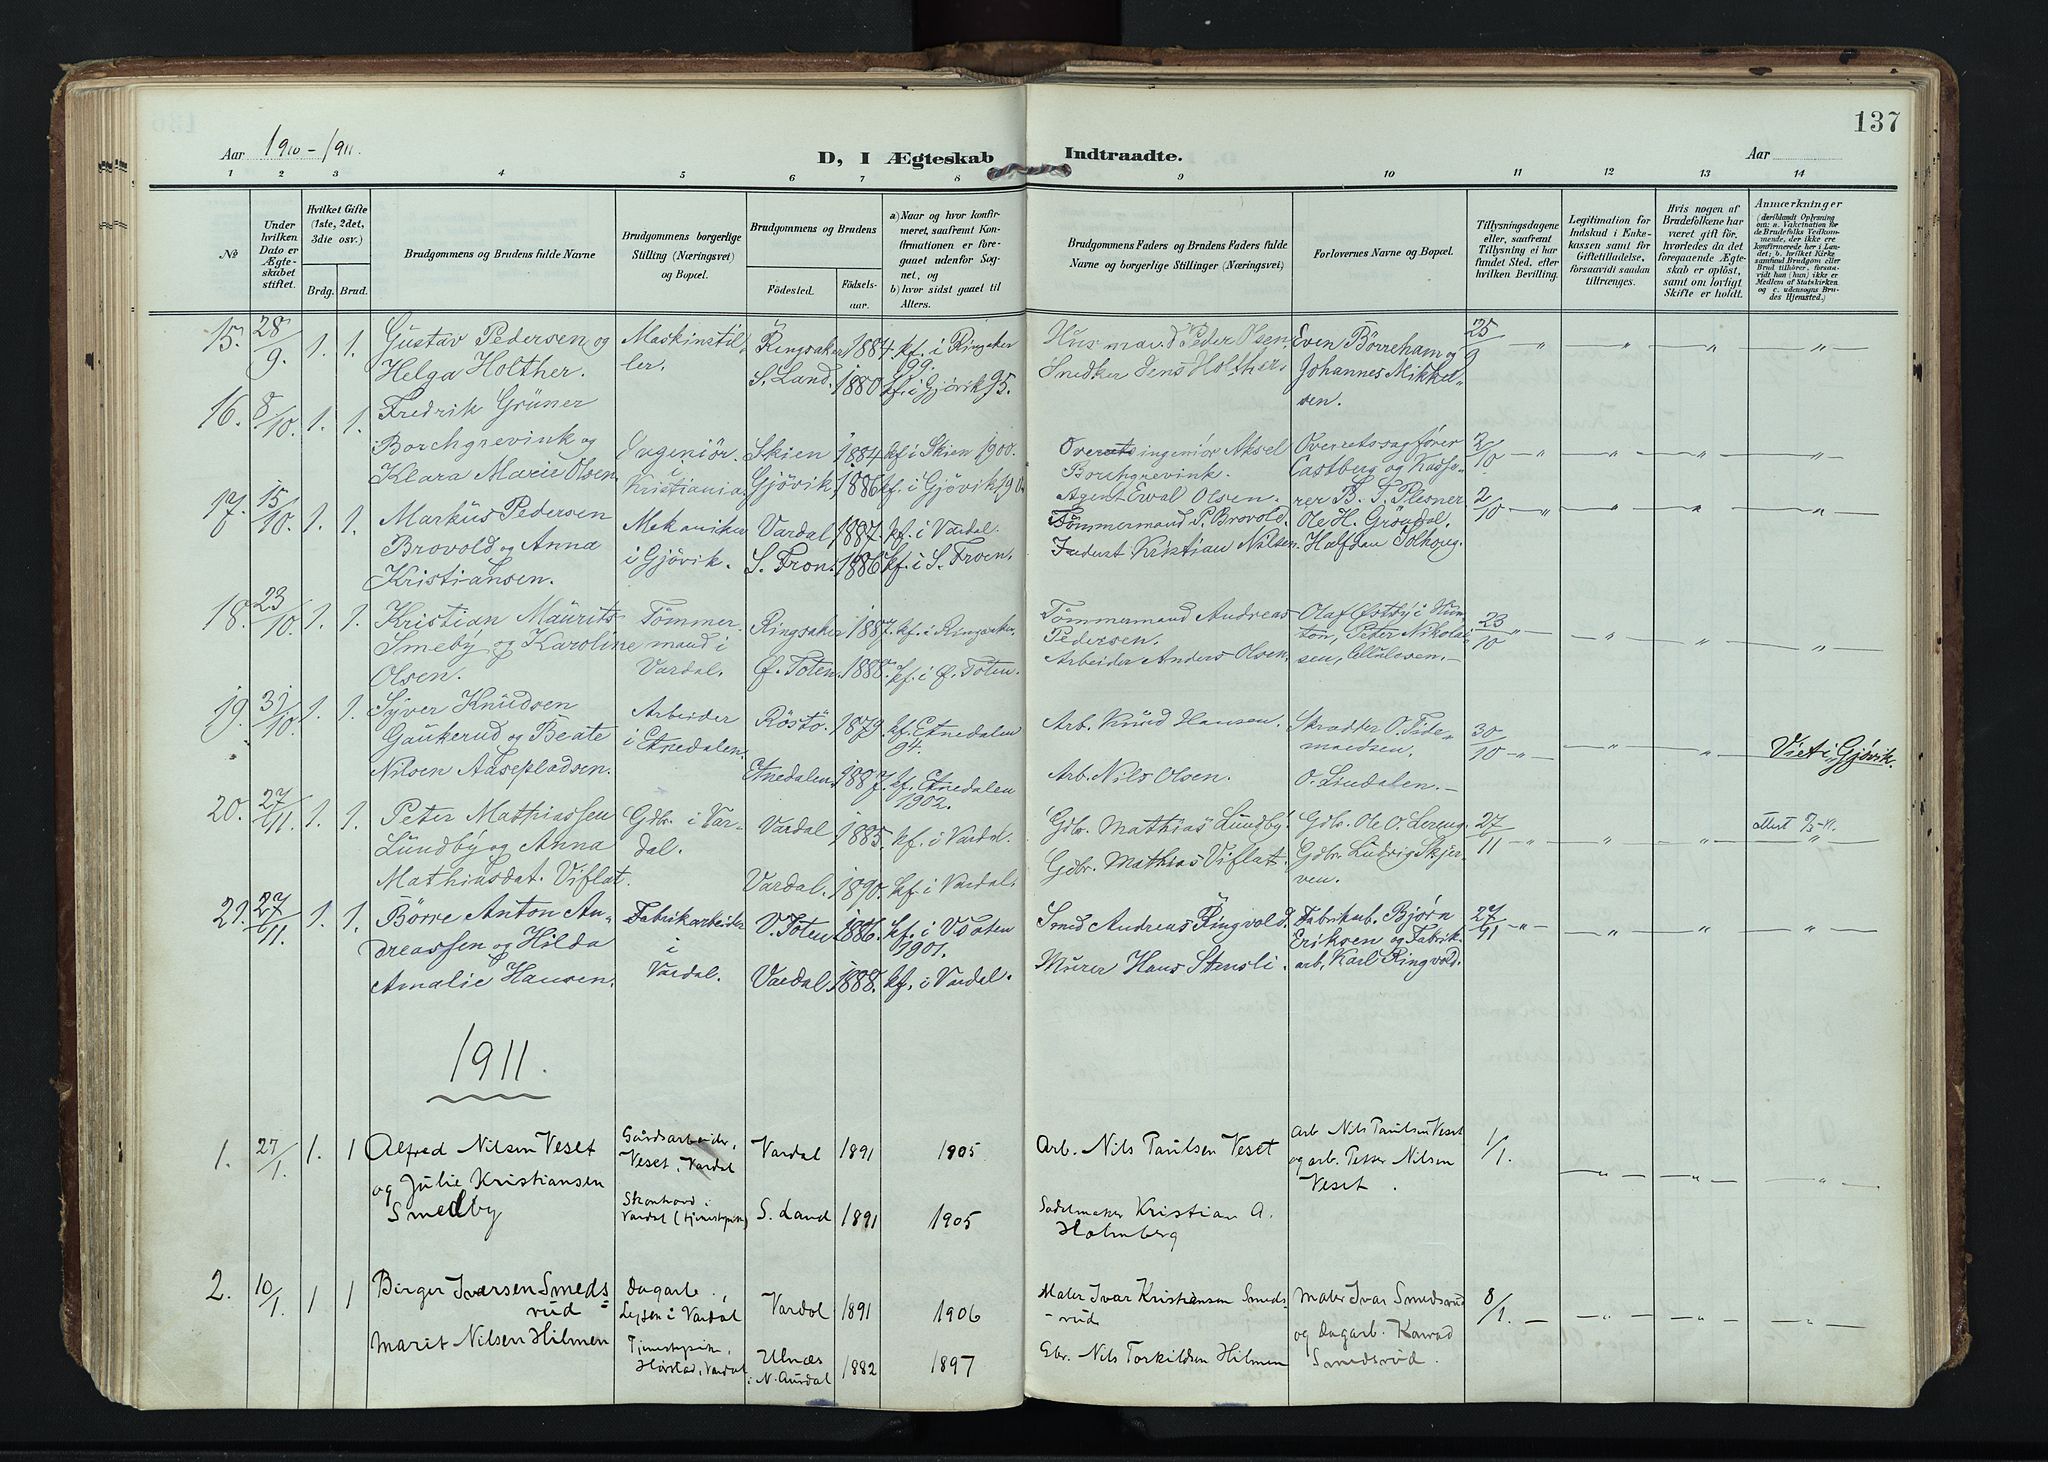 137
Aar 1910-1911.
D, I Ægteskab Indtraadte.
Aar
1 2 3 4 5 6 7 8 9 10 11 12 13 14
№
Under hvilken Dato er Ægteskabet stiftet.
Hvilket Gifte (1ste, 2det, 3die osv.)
Brdg. Brud.
Brudgommens og Brudens fulde Navne
Brudgommens borgerlige Stilling (Næringsvei) og Bopæl.
Brudgommens og Brudens
Fødested. Fødselsaar.
a) Naar og hvor konfirmeret, saafremt Konfirmationen er foregaaet udenfor Sognet, og
b) hvor sidst gaaet til Alters.
Brudgommens Faders og Brudens Faders fulde Navne og borgerlige Stillinger (Næringsvei)
Forlovernes Navne og Bopæl.
Tillysningsdagene eller, saafremt Tillysning ei har fundet Sted, efter hvilken Bevilling.
Legitimation for Indskud i Enkekassen samt for Giftetilladelse, forsaavidt saadan tiltrænges.
Hvis nogen af Brudefolkene har været gift før, hvorledes da det foregaaende Ægteskab er opløst, samt om lovligt Skifte er holdt.
Anmærkninger
15. 28/9. 1. 1. Gustav Pedersen og Maskinstil- Ringsaker 1884. kf. i Ringsaker Husmand Peder Olsen Even Börreham og 25/9 " " " "
Helga Holther. ler. S. Land. 1880 kf. i Gjövik 95. Snedker Jens Holther. Johannes Mikkel-
sen.
16. 8/10. 1. 1. Fredrik Grüner
Borchgrevink og Ingeniör i Skien 1884 kf. i Skien 1900. Overingeniör Aksel Borchgrevink. Overretssagförer 2/10 " " " "
Klara Marie Olsen. Kristiania. Gjövik 1886 kf. i Gjövik Agent Ewal Olsen. Castberg og Kasserer B. T. Plesner
17. 15/10. 1. 1. Markus Pedersen Mekaniker Vardal 1887. kf. i Vardal. Tömmermand P. Brovold. Ole H. Gröndal. 2/10 " " " "
Brovold og Anna i Gjövik. S. Fron. 1886 kf. i S. Froen. Kristian Nilsen. Halfdan Solhaug.
Kristiansen.
18. 23/10. 1. 1. Kristian Maurits Tömmer- Ringsaker 1887. kf. i Ringsaker. Tömmermand Andreas Olaf Østby i Hun- 23/10 " " " "
Smeby og Karoline mand i Pedersen. ton, Peter Nikolai-
Olsen. Vardal. Ø. Toten. 1888. kf. i Ø. Toten. Arbeider Anders Olsen. sen, Cellulosen.
19. 31/10. 1. 1. Syver Knudsen Arbeider Röstö. 1879. kf. Etnedalen 94. Arb. Knud Hansen. Skrædder O. Tide- 30/10 " " " Viet i Gjövik.
Gaukerud og Beate i Etnedalen. mandsen.
Nilsen Aasepladsen. Etnedalen. 1887. kf. Etnedalen 1902. Arb. Nils Olsen. O. Lindalen.
20. 27/11. 1. 1. Peter Mathiassen Gdbr. i Var- Vardal 1885. kf. i Vardal. Gdbr. Mathias Lundby. Gdbr. Ole O. Lereng. 27/11 " " "
Lundby og Anna dal. Gdbr. Mathias Viflat. Gdbr. Ludvig Skjer-
Mathiasdat. Viflat. Vardal. 1890. kf. i Vardal. ven.
21. 27/11. 1. 1. Börre Anton An- Fabrikarbeider V. Toten 1886. kf. i V. Toten 1901. Smed Andreas Ringvold. Fabrikarb. Björn 27/11 " " " "
dreassen og Hilda i Eriksen og Fabrik-
Amalie Hansen. Vardal. Vardal. 1888. kf. i Vardal. Murer Hans Stensli. arb. Karl Ringvold.
1911.
1. 27/1. 1. 1 Alfred Nilsen Veset Gårdsarbeider, Vardal 1891 1905 Arb. Nils Paulsen Veset Arb Nils Paulsen Veset 1/1. " " " "
og Julie Kristiansen Veset, Vardal og arb. Petter Nilsen
Smedby Vardal S. Land 1891 1905 Sadelmaker Kristian A. Holmberg Veset.
2. 10/1. 1 1 Birger Iversen Smeds- Dagarb., Vardal 1891 1906 Maler Ivar Kristiansen Smeds- Maler Ivar Smedsrud 8/1. " " " "
rud i Vardal -rud og Dagarb. Konrad
Marit Nilsen Hilmen Vardal Ulnæs i N. Aurdal 1882 1897 Gbr. Nils Torkildsen Hilmen Smedsrud.